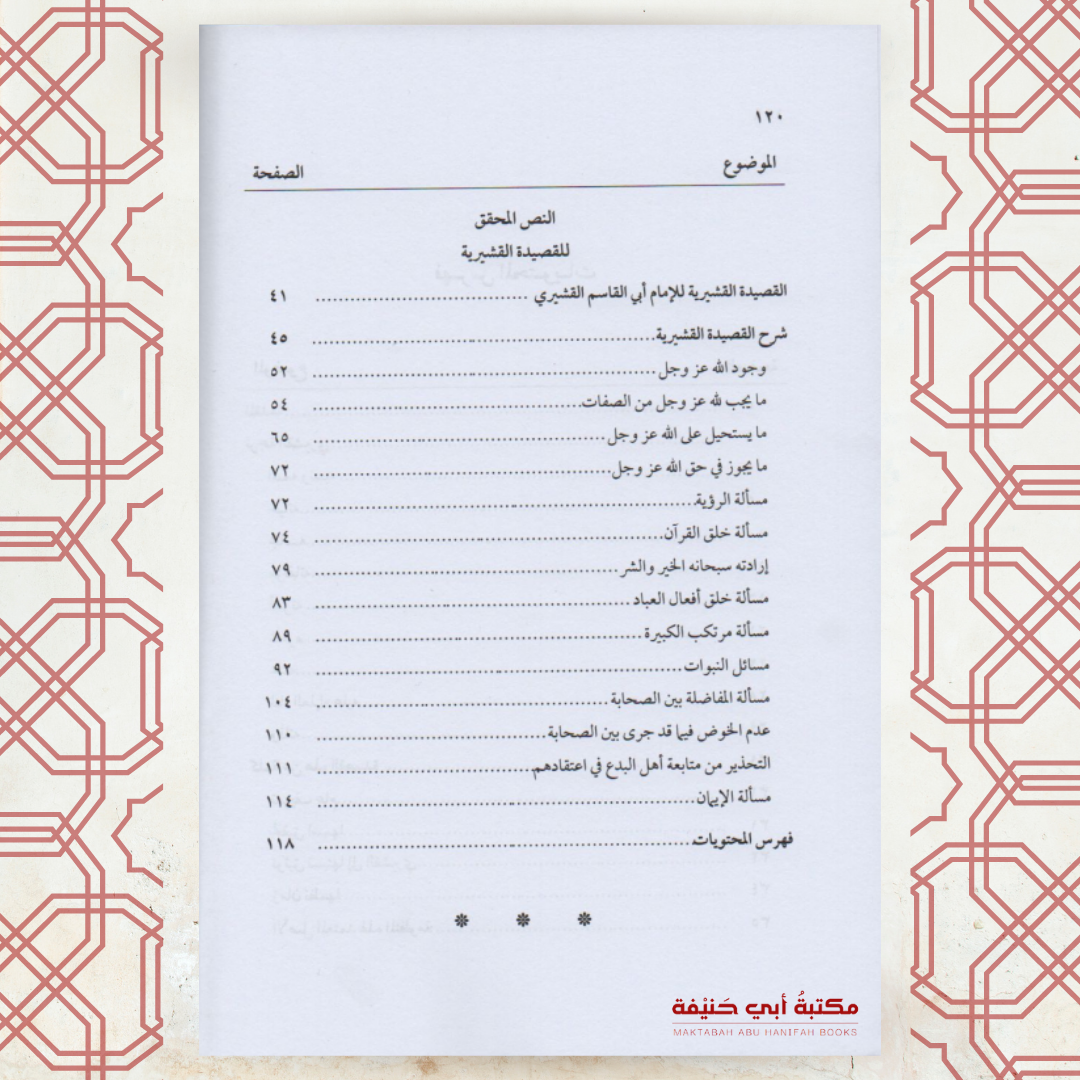 ١٢٠
الموضوع الصفحة
النص المحقق
للقصيدة القشيرية
القصيدة القشيرية للإمام أبي القاسم القشيري ................................... ٤١
شرح القصيدة القشيرية................................................................ ٤٥
وجود الله عز وجل................................................................ ٥٢
ما يجب لله عز وجل من الصفات.................................................. ٥٤
ما يستحيل على الله عز وجل...................................................... ٦٥
ما يجوز في حق الله عز وجل...................................................... ٧٢
مسألة الرؤية...................................................................... ٧٢
مسألة خلق القرآن................................................................ ٧٤
إرادته سبحانه الخير والشر........................................................ ٧٩
مسألة خلق أفعال العباد.......................................................... ٨٣
مسألة مرتكب الكبيرة............................................................ ٨٩
مسائل النبوات.................................................................... ٩٢
مسألة المفاضلة بين الصحابة...................................................... ١٠٤
عدم الخوض فيما قد جرى بين الصحابة.......................................... ١١٠
التحذير من متابعة أهل البدع في اعتقادهم........................................ ١١١
مسألة الإيمان...................................................................... ١١٤
فهرس المحتويات.................................................................. ١١٨
مكتبةُ أبي حَنيْفة
MAKTABAH ABU HANIFAH BOOKS